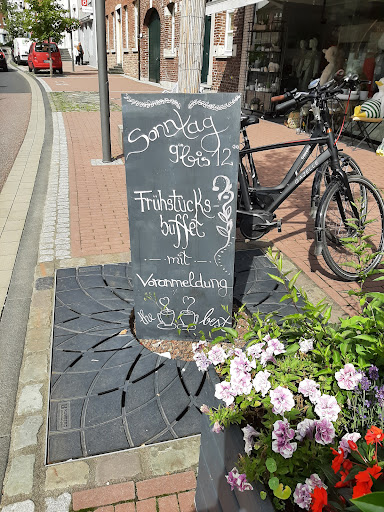 Sonntag
9 bis 12⁰⁰
Frühstücks-
buffet
mit
Voranmeldung
the best